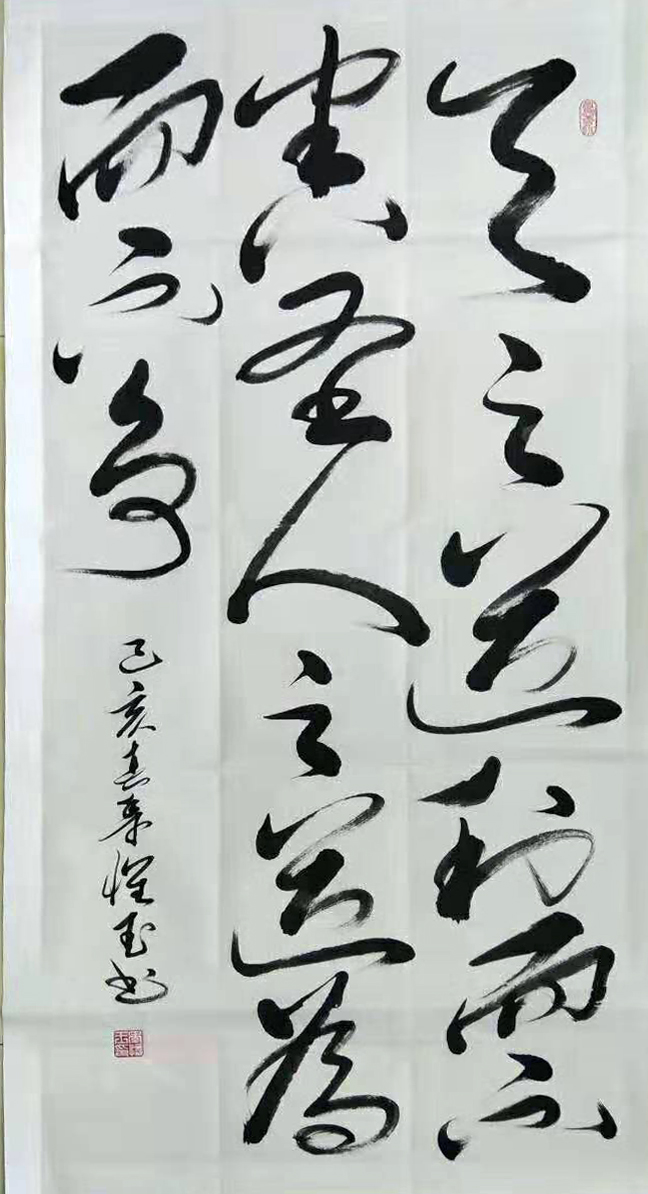 天之道利而不
害圣人之道为
而不争
己亥 书